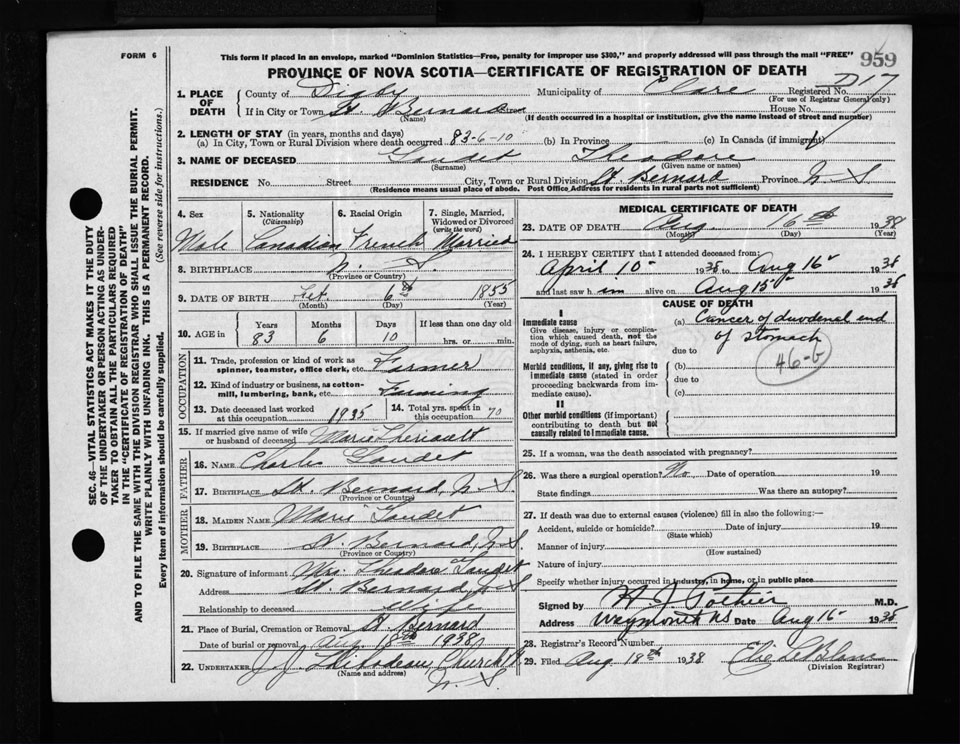 FORM 6
This form if placed in an envelope, marked "Dominion Statistics—Free, penalty for improper use $300," and properly addressed will pass through the mail "FREE"
959
PROVINCE OF NOVA SCOTIA—CERTIFICATE OF REGISTRATION OF DEATH
SEC. 46—VITAL STATISTICS ACT MAKES IT THE DUTY
OF THE UNDERTAKER OR PERSON ACTING AS UNDER-
TAKER TO OBTAIN ALL THE PARTICULARS REQUIRED
IN THE "CERTIFICATE OF REGISTRATION OF DEATH"
AND TO FILE THE SAME WITH THE DIVISION REGISTRAR WHO SHALL ISSUE THE BURIAL PERMIT.
WRITE PLAINLY WITH UNFADING INK. THIS IS A PERMANENT RECORD.
Every item of information should be carefully supplied. (See reverse side for instructions.)
1. PLACE OF DEATH
County of Digby Municipality of Clare Registered No. D17
(For use of Registrar General only)
If in City or Town St. Bernard Street House No.
(Name) (If death occurred in a hospital or institution, give the name instead of street and number)
2. LENGTH OF STAY (in years, months and days)
(a) In City, Town or Rural Division where death occurred 83-6-10 (b) In Province (c) In Canada (if immigrant)
3. NAME OF DECEASED Gaudet Theodore
(Surname) (Given name or names)
RESIDENCE No. Street City, Town or Rural Division St. Bernard Province N-S
(Residence means usual place of abode. Post Office Address for residents in rural parts not sufficient)
4. Sex 5. Nationality 6. Racial Origin 7. Single, Married, Widowed or Divorced
(Citizenship) (write the word)
Male Canadian French Married
8. BIRTHPLACE N. S.
(Province or Country)
9. DATE OF BIRTH Feb. 6th 1855
(Month) (Day) (Year)
10. AGE in Years Months Days If less than one day old
83 6 10 hrs. or min.
OCCUPATION
11. Trade, profession or kind of work as spinner, teamster, office clerk, etc. Farmer
12. Kind of industry or business, as cotton-mill, lumbering, bank, etc. Farming
13. Date deceased last worked at this occupation 1935 14. Total yrs. spent in this occupation 70
15. If married give name of wife or husband of deceased Marie Theriault
FATHER
16. NAME Charlie Gaudet
17. BIRTHPLACE St. Bernard, N-S
(Province or Country)
MOTHER
18. MAIDEN NAME Marie Gaudet
19. BIRTHPLACE St. Bernard, N.S.
(Province or Country)
20. Signature of informant Mrs. Theodore Gaudet
Address St. Bernard, N-S
Relationship to deceased Wife
21. Place of Burial, Cremation or Removal St. Bernard
Date of burial or removal Aug 18th 1938
22. UNDERTAKER J. J. Thibodeau, Church Pt.
(Name and address) N-S
MEDICAL CERTIFICATE OF DEATH
23. DATE OF DEATH Aug. 16th 1938
(Month) (Day) (Year)
24. I HEREBY CERTIFY that I attended deceased from:
April 10 1938 to Aug 16 1938
and last saw him alive on Aug 15 1938
CAUSE OF DEATH
I
Immediate cause
Give disease, injury or complication which caused death, not the mode of dying, such as heart failure, asphyxia, asthenia, etc.
(a) Cancer of duodenal end
of stomach
due to
46-b
Morbid conditions, if any, giving rise to immediate cause (stated in order proceeding backwards from immediate cause).
(b)
due to
(c)
II
Other morbid conditions (if important) contributing to death but not causally related to immediate cause.
25. If a woman, was the death associated with pregnancy?
26. Was there a surgical operation? No Date of operation 19
State findings Was there an autopsy?
27. If death was due to external causes (violence) fill in also the following:—
Accident, suicide or homicide? Date of injury 19
(State which)
Manner of injury
(How sustained)
Nature of injury
Specify whether injury occurred in industry, in home, or in public place
Signed by H J Pothier M.D.
Address Weymouth NS Date Aug 16 1938
28. Registrar's Record Number
29. Filed Aug 18th 1938 Elie LeBlanc
(Division Registrar)